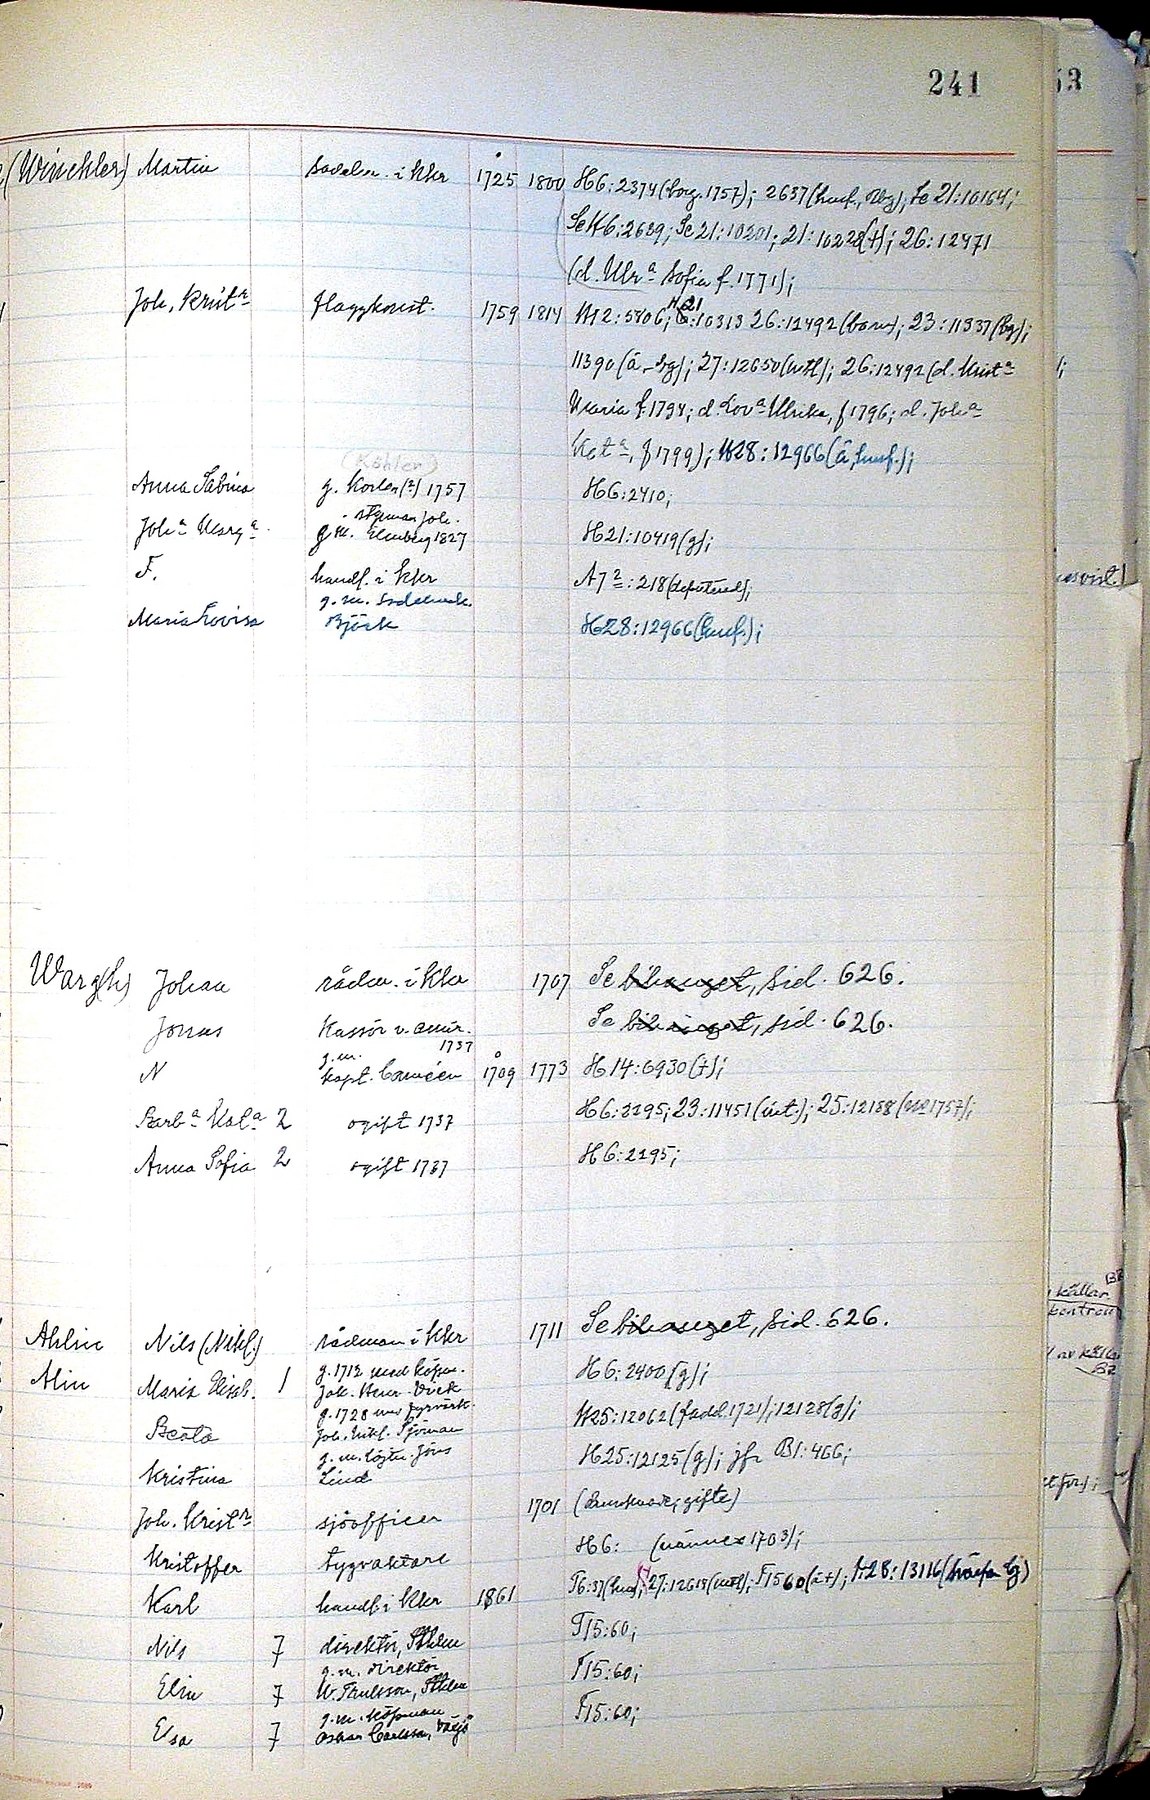 241
53
(Winckler) Martin sadelm. i Kkr 1725 1800 H6:2374 (borg. 1757); 2637 (husf., Nbg); Se 21:10164;
Se H6:2689; Se 21:10201; 21:10228 (†); 26:12471
(d. Ulr a Sofia f. 1771);
Joh. Krist n flaggkonst. 1759 1814 H12:5406; H21:10313 26:12492 (barn); 23:11337 (bg);
11390 (ä-bg); 27:12650 (mtl); 26:12492 (d. Krist a
Maria f 1794; d. Lov a Ulrika, f 1796; d. Joh a
Kat a, f 1799); H28:12966 (ä, husf.);
(Köhler)
Anna Sabina g. Korlen (?) 1757 H6:2410;
styrman Joh.
Joh a Marg a g.m. Elmberg 1827 H21:10419 (g);
F. handl. i Kkr A7 2:218 (deputerad);
g. m. sadelmak.
Maria Lovisa Björk H28:12966 (husf.);
Warg(h) Johan rådm. i Kkr 1707 Se bihanget, sid. 626.
Jonas Kassör v. amir. 1737 Se bihanget, sid. 626.
g.m.
N kapt. 1709 1773 H14:6930 (†);
Barb a Kat a 2 ogift 1737 H6:2295; 23:11451 (int.); 25:12158
Anna Sofia 2 ogift 1737 H6:2295;
Ahlin Nils (Nikl.) rådman i Kkr 1711 Se bihanget, sid. 626.
g. 1712 med köpm.
Alin Maria Elisab. 1 Joh. Henr. H6:2400 (g);
g. 1728 m
Beata Joh. Nikl. Sjöman H25:12062 (fadd. 1721); 12128 (g);
g. m. löjtn Jöns
Kristina Lind H25:12125 (g); jfr B1:466;
Joh. Krist n sjöofficer 1701 gifte)
Kristoffer tygvaktare H6: 1703);
Karl handl. i Kkr 1861 T6:37 27:12618 (mtl); T1560 (ä†); H28:13116
Nils 7 direktör, Sthlm T15:60;
g. m. direktör
Elin 7 W. Paulsson, Sthlm T15:60;
g. m. köpman
Elsa 7 Oskar Carlsson, Växjö T15:60;
källar